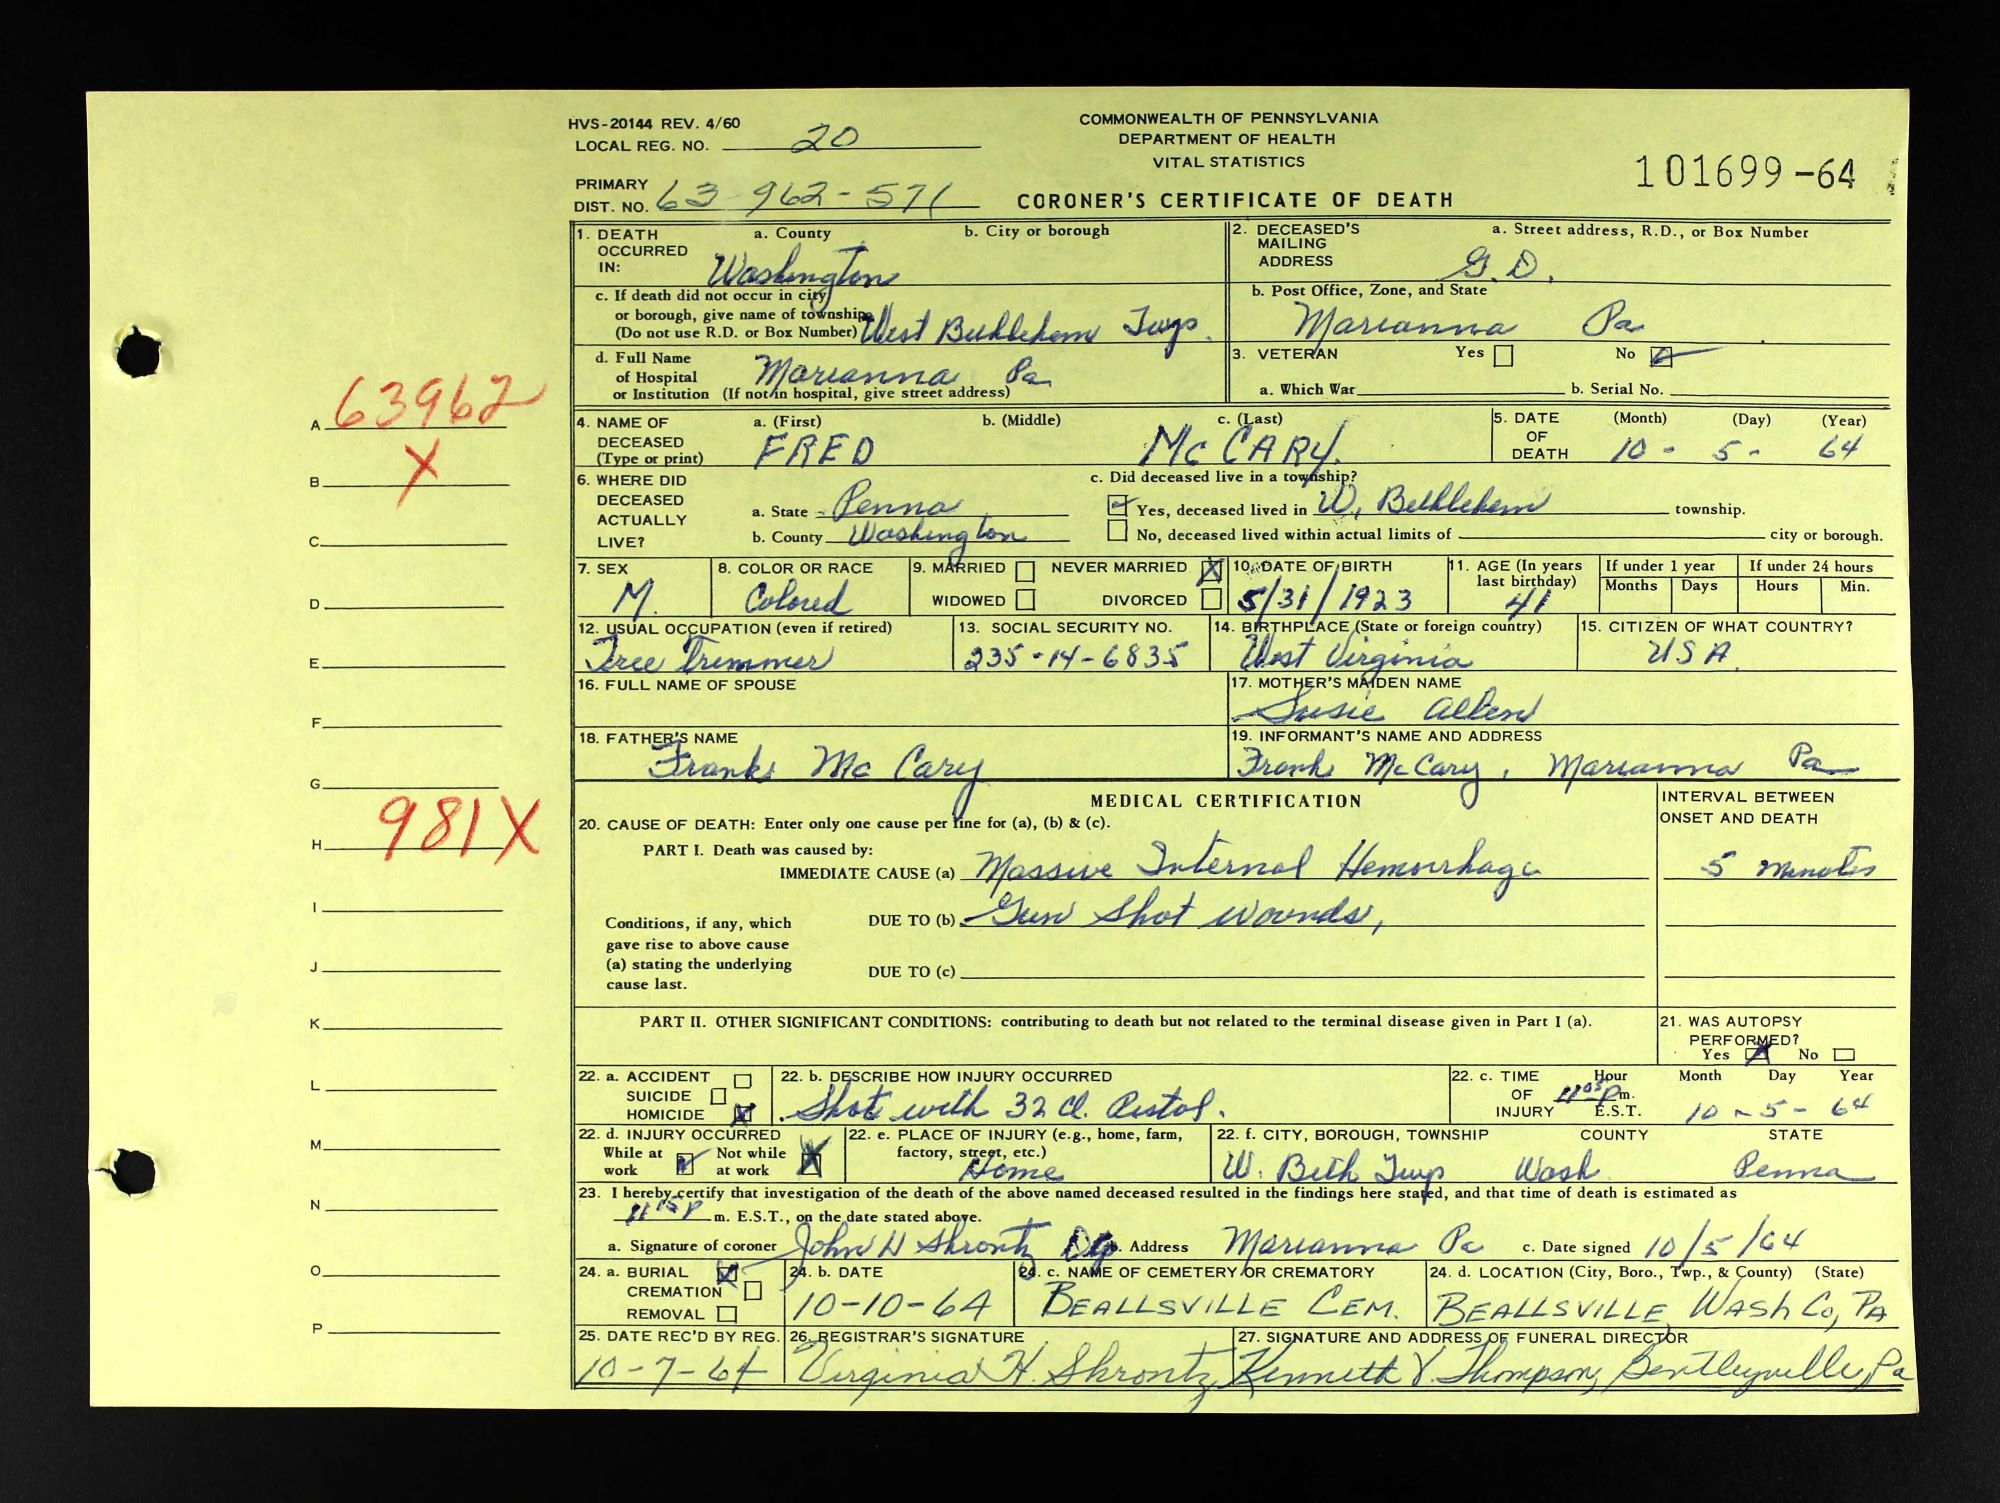 HVS-20144 REV. 4/60
LOCAL REG. NO. 20
COMMONWEALTH OF PENNSYLVANIA
DEPARTMENT OF HEALTH
VITAL STATISTICS
101699-64
PRIMARY
DIST. NO. 63-962-571
CORONER'S CERTIFICATE OF DEATH
1. DEATH OCCURRED IN: a. County b. City or borough
Washington
c. If death did not occur in city
or borough, give name of township
(Do not use R.D. or Box Number) West Bethlehem Twp.
d. Full Name
of Hospital
or Institution (If not in hospital, give street address)
Marianna Pa
2. DECEASED'S MAILING ADDRESS a. Street address, R.D., or Box Number
G.D.
b. Post Office, Zone, and State
Marianna Pa
3. VETERAN Yes No
a. Which War b. Serial No.
4. NAME OF DECEASED (Type or print) a. (First) b. (Middle) c. (Last)
FRED McCARY.
5. DATE OF DEATH (Month) (Day) (Year)
10 - 5 - 64
6. WHERE DID DECEASED ACTUALLY LIVE?
a. State - Penna
b. County Washington
c. Did deceased live in a township?
Yes, deceased lived in W. Bethlehem township.
No, deceased lived within actual limits of city or borough.
7. SEX
M.
8. COLOR OR RACE
Colored
9. MARRIED NEVER MARRIED X
WIDOWED DIVORCED
10. DATE OF BIRTH
5/31/1923
11. AGE (In years last birthday)
41
If under 1 year
Months Days
If under 24 hours
Hours Min.
12. USUAL OCCUPATION (even if retired)
Tree Trimmer
13. SOCIAL SECURITY NO.
235-14-6835
14. BIRTHPLACE (State or foreign country)
West Virginia
15. CITIZEN OF WHAT COUNTRY?
USA
16. FULL NAME OF SPOUSE
17. MOTHER'S MAIDEN NAME
Susie Allen
18. FATHER'S NAME
Frank Mc Cary
19. INFORMANT'S NAME AND ADDRESS
Frank McCary, Marianna Pa
MEDICAL CERTIFICATION
INTERVAL BETWEEN
ONSET AND DEATH
20. CAUSE OF DEATH: Enter only one cause per line for (a), (b) & (c).
PART I. Death was caused by:
IMMEDIATE CAUSE (a) Massive Internal Hemorrhage 5 minutes
Conditions, if any, which
gave rise to above cause
(a) stating the underlying
cause last.
DUE TO (b) Gun Shot Wounds,
DUE TO (c)
PART II. OTHER SIGNIFICANT CONDITIONS: contributing to death but not related to the terminal disease given in Part I (a).
21. WAS AUTOPSY
PERFORMED?
Yes X No
22. a. ACCIDENT
SUICIDE
HOMICIDE X
22. b. DESCRIBE HOW INJURY OCCURRED
Shot with 32 Cl. Pistol.
22. c. TIME OF INJURY Hour Month Day Year
11 05 P m. E.S.T. 10 - 5 - 64
22. d. INJURY OCCURRED
While at work Not while at work X
22. e. PLACE OF INJURY (e.g., home, farm,
factory, street, etc.)
Home
22. f. CITY, BOROUGH, TOWNSHIP COUNTY STATE
W. Beth Twp Wash Penna
23. I hereby certify that investigation of the death of the above named deceased resulted in the findings here stated, and that time of death is estimated as
11 15 P m. E.S.T., on the date stated above.
a. Signature of coroner John H Shrontz Dp b. Address Marianna Pa c. Date signed 10/5/64
24. a. BURIAL X
CREMATION
REMOVAL
24. b. DATE
10-10-64
24. c. NAME OF CEMETERY OR CREMATORY
BEALLSVILLE CEM.
24. d. LOCATION (City, Boro., Twp., & County) (State)
BEALLSVILLE, WASH Co, PA
25. DATE REC'D BY REG.
10-7-64
26. REGISTRAR'S SIGNATURE
Virginia H. Shrontz
27. SIGNATURE AND ADDRESS OF FUNERAL DIRECTOR
Kenneth V. Thompson, Bentleyville, Pa
A 63962
B X
C
D
E
F
G
H 981X
I
J
K
L
M
N
O
P